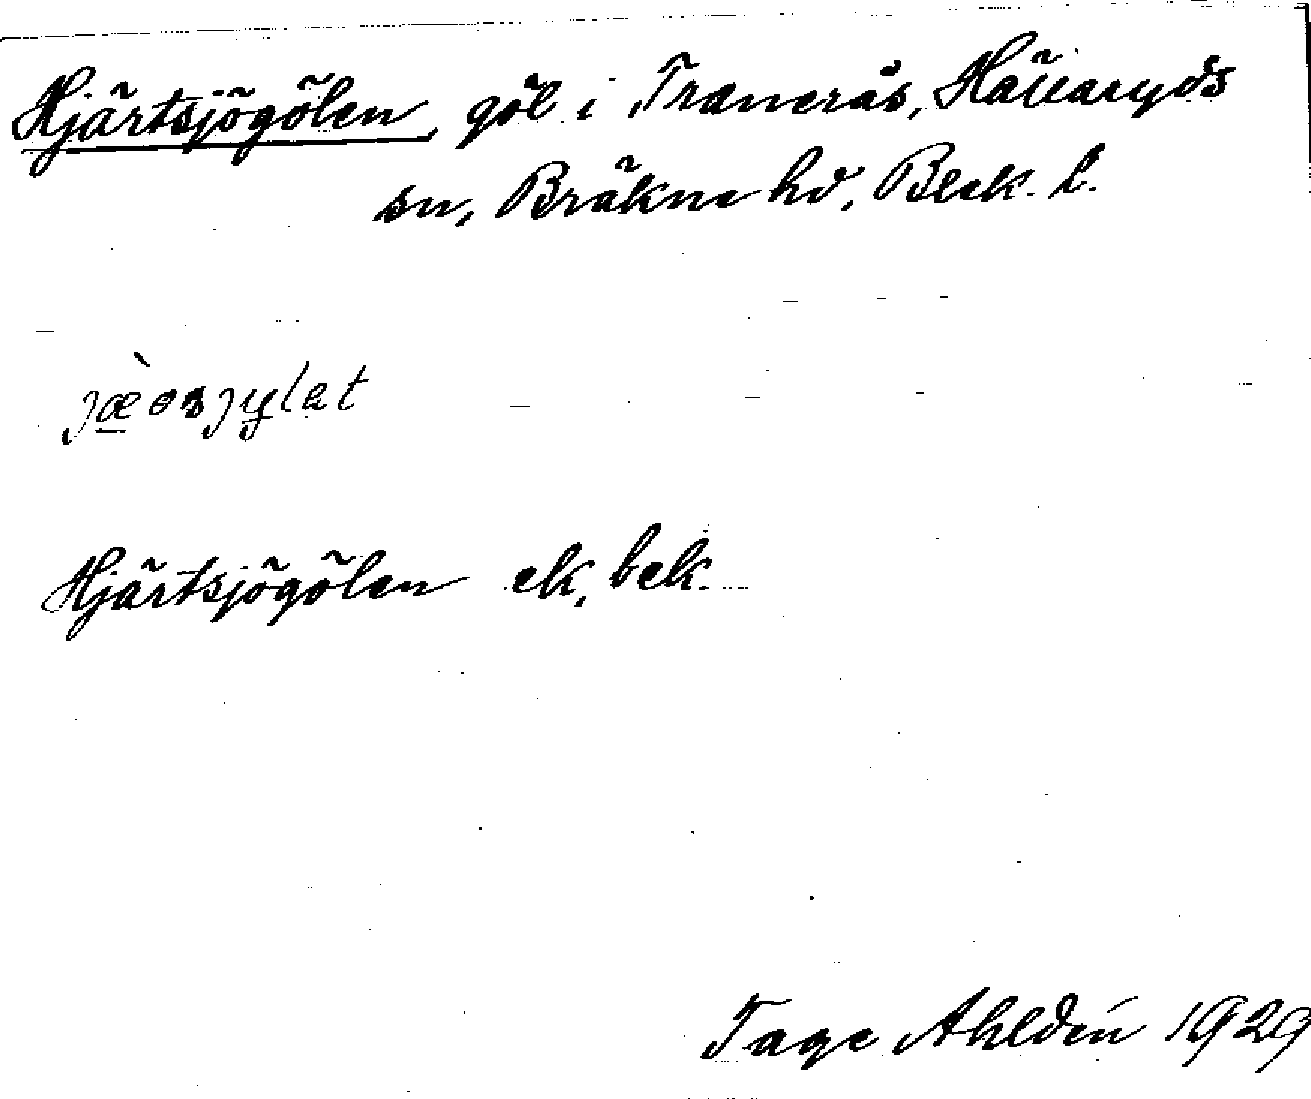 Hjärtsjögölen, göl i Tranerås, Hällaryds
sn, Bräkne hd, Blek. l.
Hjärtsjögölen ek, bek.
Tage Ahldén 1929